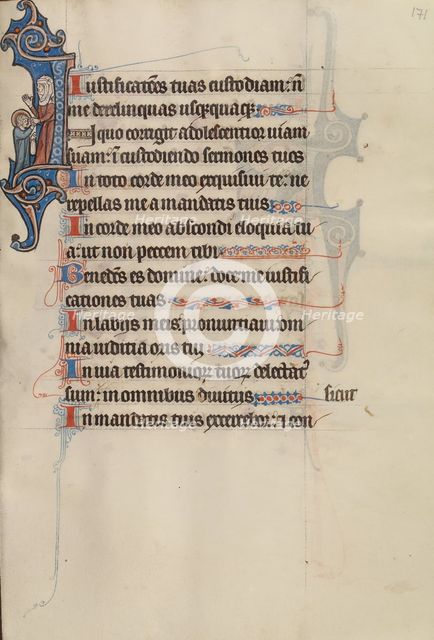 171
Iustificatōes tuas custodiam: n̄
me derelinquas usq;quaq;
In quo corrigit adolescentior uiam
suam: ī custodiendo sermones tuos
In toto corde meo exquisiui te: ne
repellas me a mandatis tuis
In corde meo abscondi eloquia tu
a: ut non peccem tibi
Benedc̄s es domine: doce me iustifi
cationes tuas
In labijs meis: pronuntiaui om
nia iudicia oris tui
In uia testimonioꝝ tuoꝝ delectatꝰ
sum: in omnibus diuitijs sicut
In mandatis tuis exercebor: ⁊ con